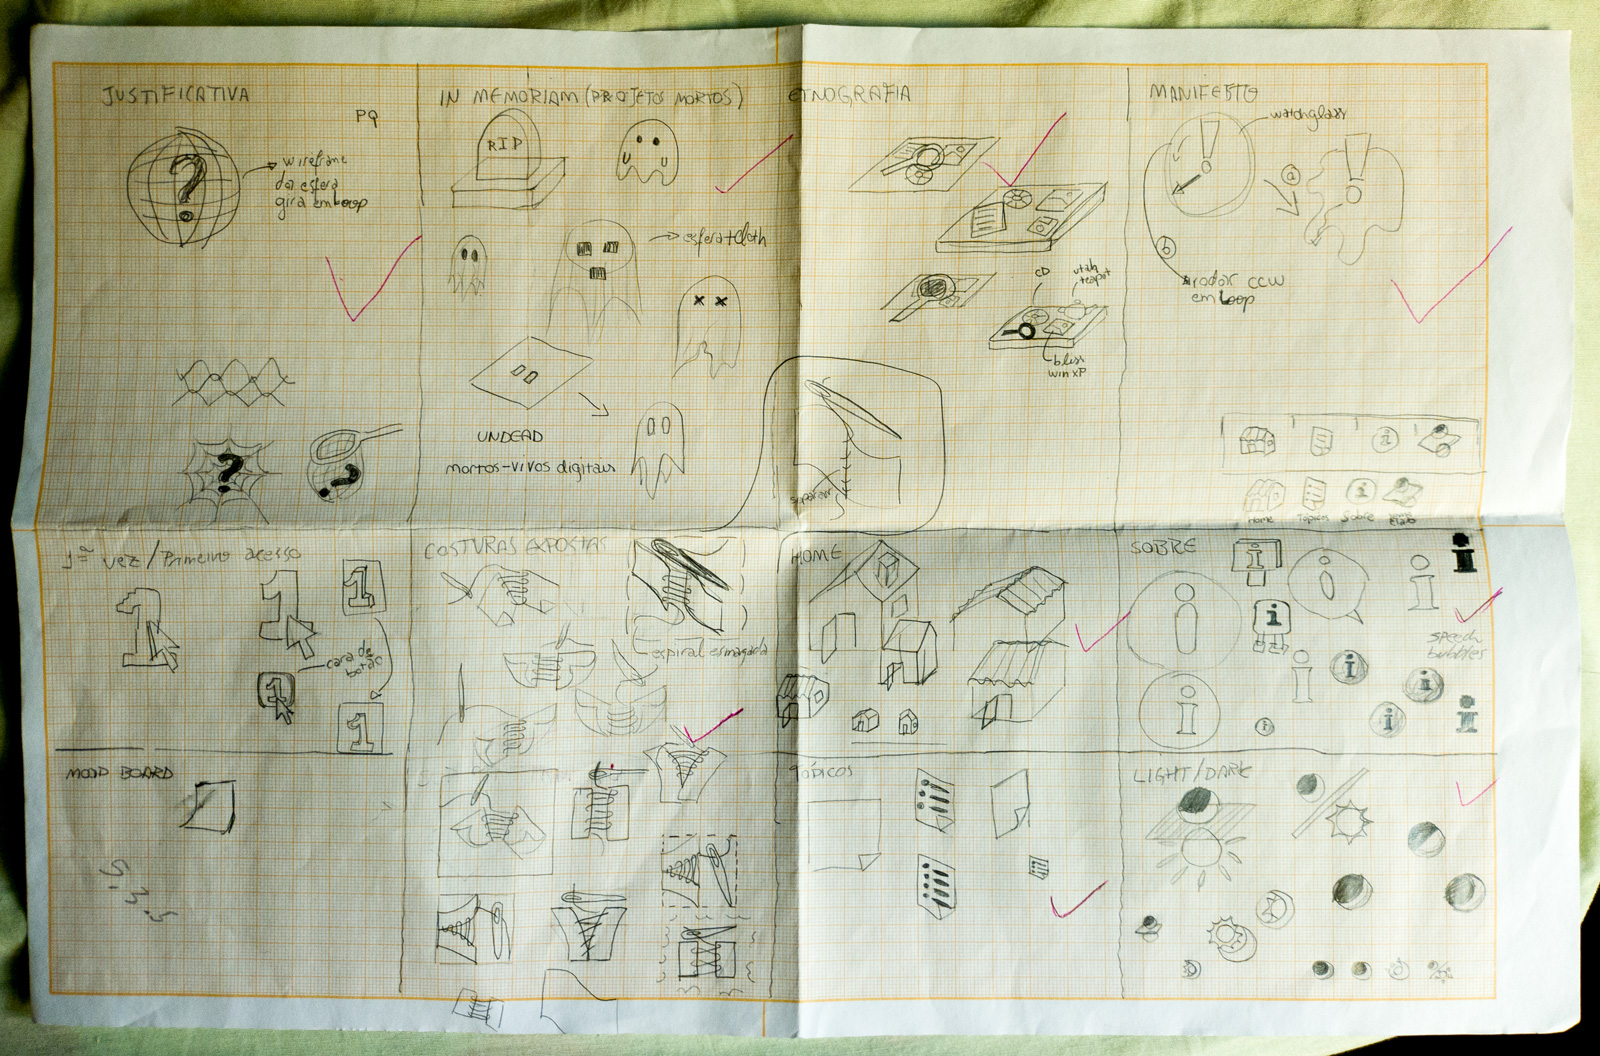 JUSTIFICATIVA
PQ
?
wireframe
da esfera
gira em loop
?
?
IN MEMORIAM (PROJETOS MORTOS)
RIP
esfera + cloth
UNDEAD
mortos-vivos digitais
ETNOGRAFIA
CD
utah
teapot
bliss
win XP
separar
MANIFESTO
watchglass
!
!
a
b
rodar CCW
em loop
i
Home
Tópicos
i
Sobre
1ª vez / Primeiro acesso
1
1
1
cara de
botão
1
1
COSTURAS EXPOSTAS
espiral esmagada
HOME
SOBRE
i
i
i
i
i
speech
bubbles
i
i
i
i
i
i
i
i
MOOD BOARD
S.3.S
TÓPICOS
LIGHT/DARK